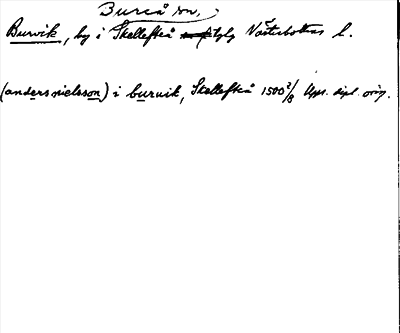 Bureå sn,
Burvik, by i Skellefteå lfg Västerbottens l.
(anders nielsson) i burvik, Skellefteå 1500 2/8 Upps. dipl. orig.